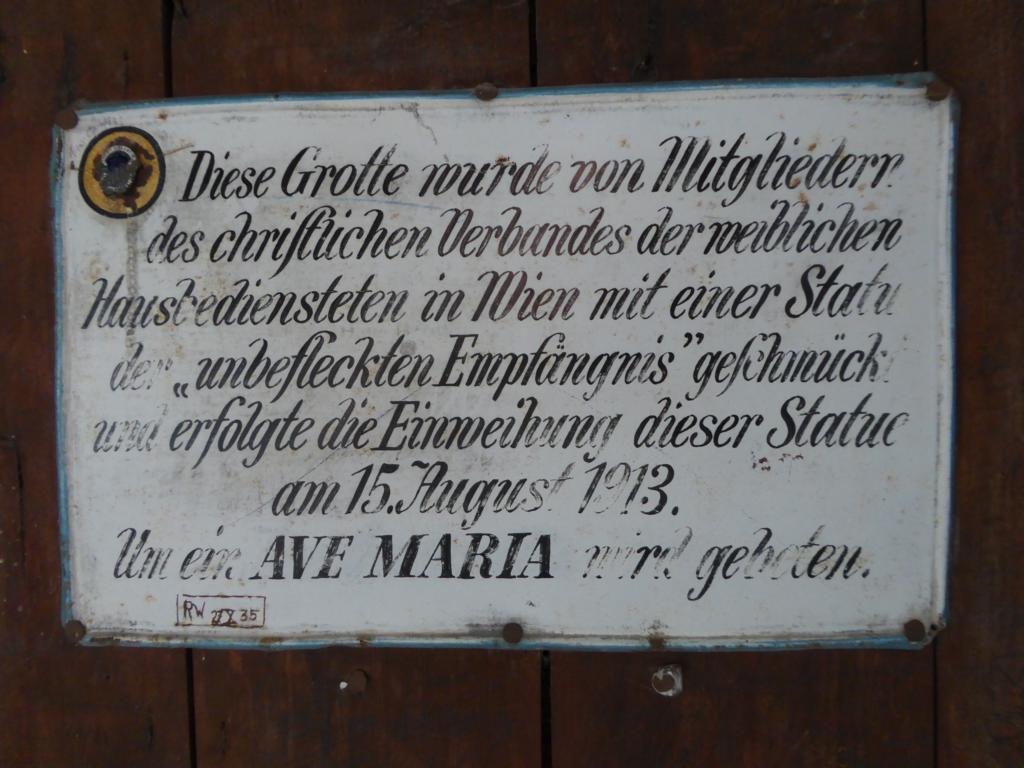 Diese Grotte wurde von Mitgliedern
des christlichen Verbandes der weiblichen
Hausbediensteten in Wien mit einer Statue
der „unbefleckten Empfängnis" geschmückt
und erfolgte die Einweihung dieser Statue
am 15. August 1913.
Um ein AVE MARIA wird gebeten.
RW 35